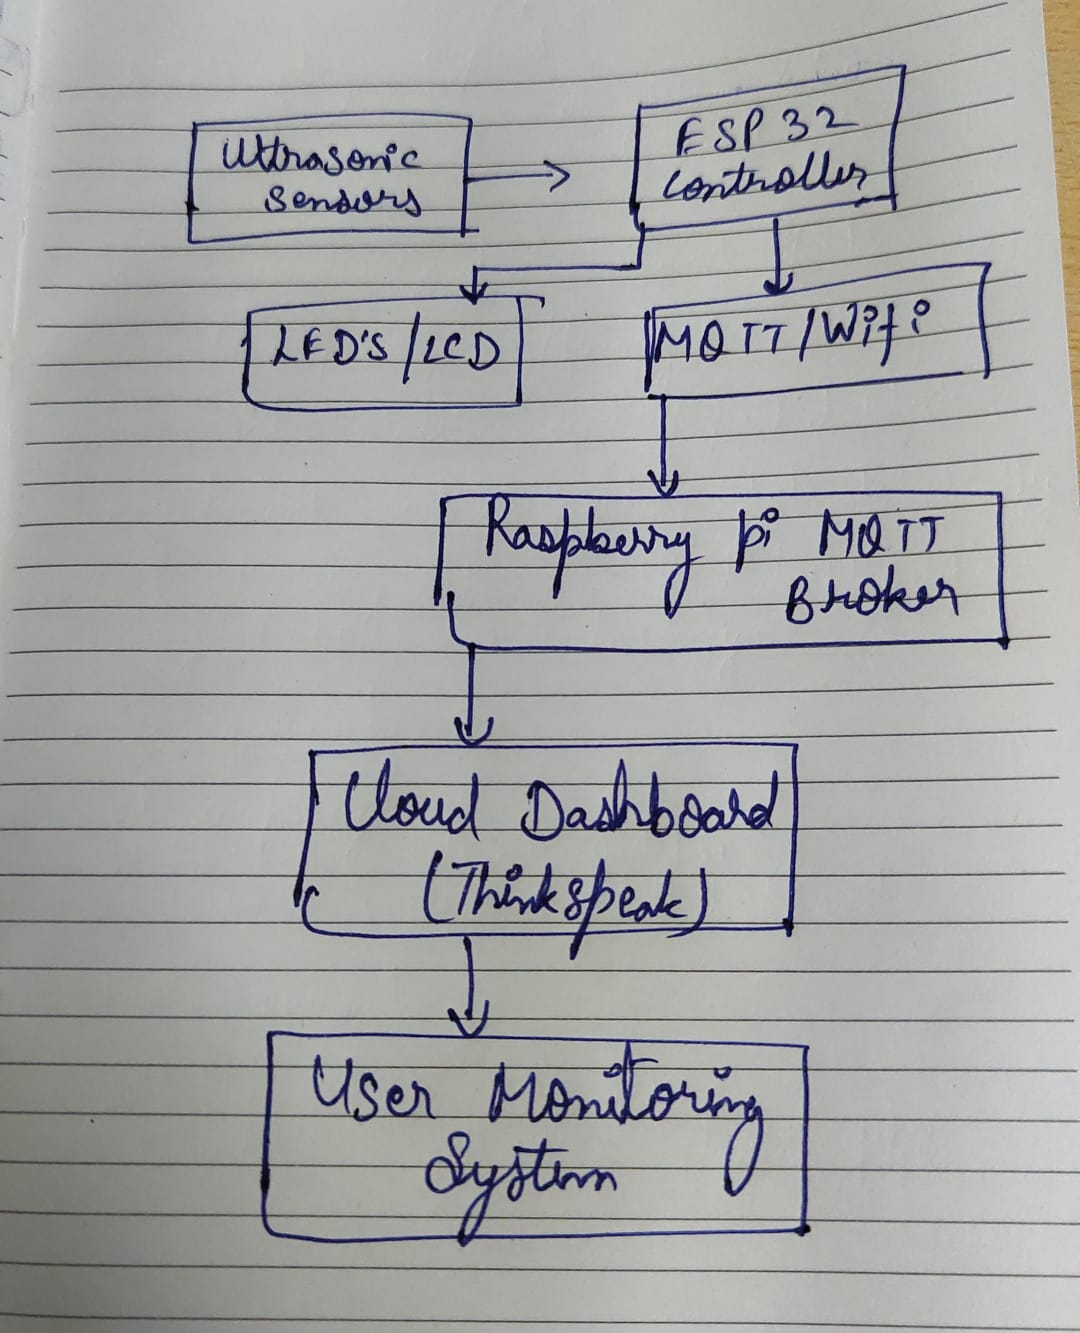 Ultrasonic
Sensors
ESP32
Controller
LED'S/LCD
MQTT/Wifi
Raspberry pi MQTT
Broker
Cloud Dashboard
(Thinkspeak)
User Monitoring
System